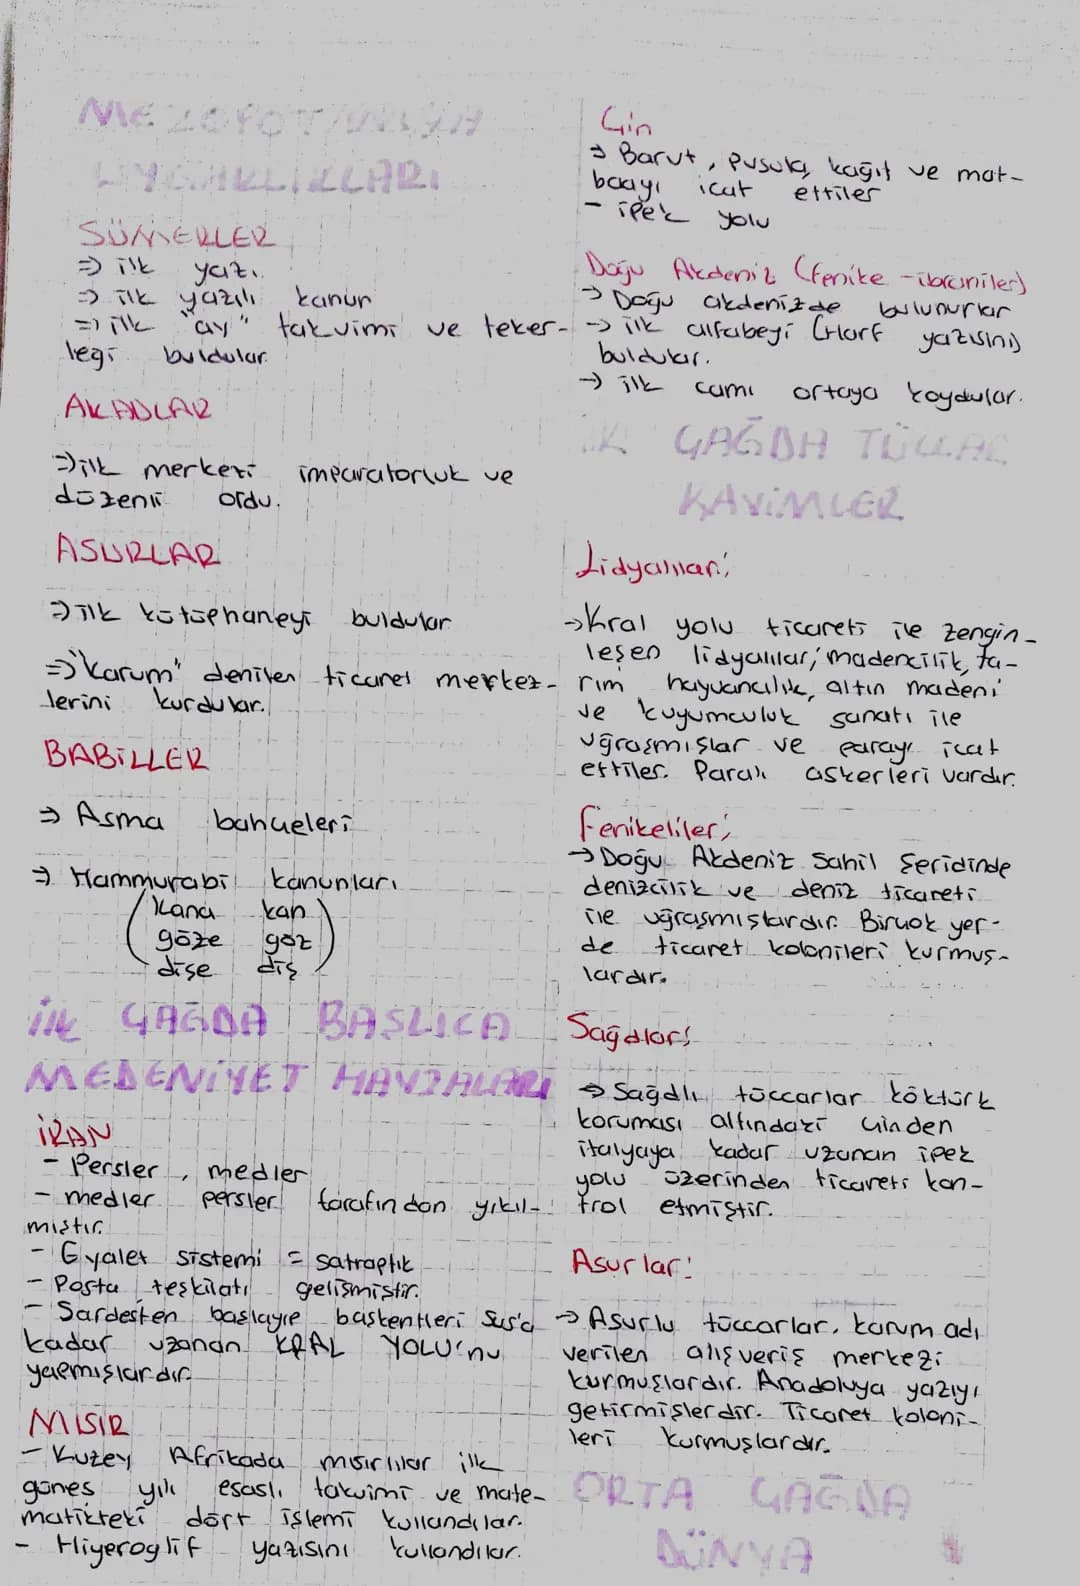 MEZOPOTAMYA
UYGARLIKLARI
SÜMERLER
⇒ ilk yazı.
⇒ ilk yazılı kanun
⇒ ilk "ay" takvimi ve teker-
leği buldular.
AKADLAR
⇒ ilk merkezi imparatorluk ve
düzenli ordu.
ASURLAR
⇒ ilk kütüphaneyi buldular
⇒ "Karum" denilen ticaret merkez-
lerini kurdular.
BABİLLER
⇒ Asma bahçeleri
⇒ Hammurabi kanunları
(kana kan
göze göz
dişe diş)
İlk ÇAĞDA BAŞLICA
MEDENİYET HAVZALARI
İRAN
- Persler, medler
- medler persler tarafından yıkıl-
mıştır.
- Eyalet sistemi = satraplık
- Posta teşkilatı gelişmiştir.
- Sardesten başlayıp başkentleri Sus'a
kadar uzanan KRAL YOLU'nu
yapmışlardır.
MISIR
- Kuzey Afrikada mısırlılar ilk
güneş yılı esaslı takvimi ve mate-
matikteki dört işlemi kullandılar.
- Hiyeroglif yazısını kullandılar.
Çin
⇒ Barut, pusula, kağıt ve mat-
baayı icat ettiler
- ipek yolu
Doğu Akdeniz (Fenike - ibraniler)
→ Doğu akdenizde bulunurlar
→ ilk alfabeyi (Harf yazısını)
buldular.
→ ilk camı ortaya koydular.
İLK ÇAĞDA TÜCCAR
KAVİMLER
Lidyalılar;
→ Kral yolu ticareti ile zengin-
leşen lidyalılar; madencilik, ta-
rım hayvancılık, altın madeni
ve kuyumculuk sanatı ile
uğraşmışlar ve parayı icat
ettiler. Paralı askerleri vardır.
Fenikeliler;
→ Doğu Akdeniz sahil şeridinde
denizcilik ve deniz ticareti
ile uğraşmışlardır. Birçok yer-
de ticaret kolonileri kurmuş-
lardır.
Soğdlar;
→ Soğdlu tüccarlar köktürk
koruması altındaki çinden
italyaya kadar uzanan ipek
yolu üzerinden ticareti kon-
trol etmiştir.
Asurlar:
→ Asurlu tüccarlar, karum adı
verilen alışveriş merkezi
kurmuşlardır. Anadoluya yazıyı
getirmişlerdir. Ticaret koloni-
leri kurmuşlardır.
ORTA ÇAĞDA
DÜNYA